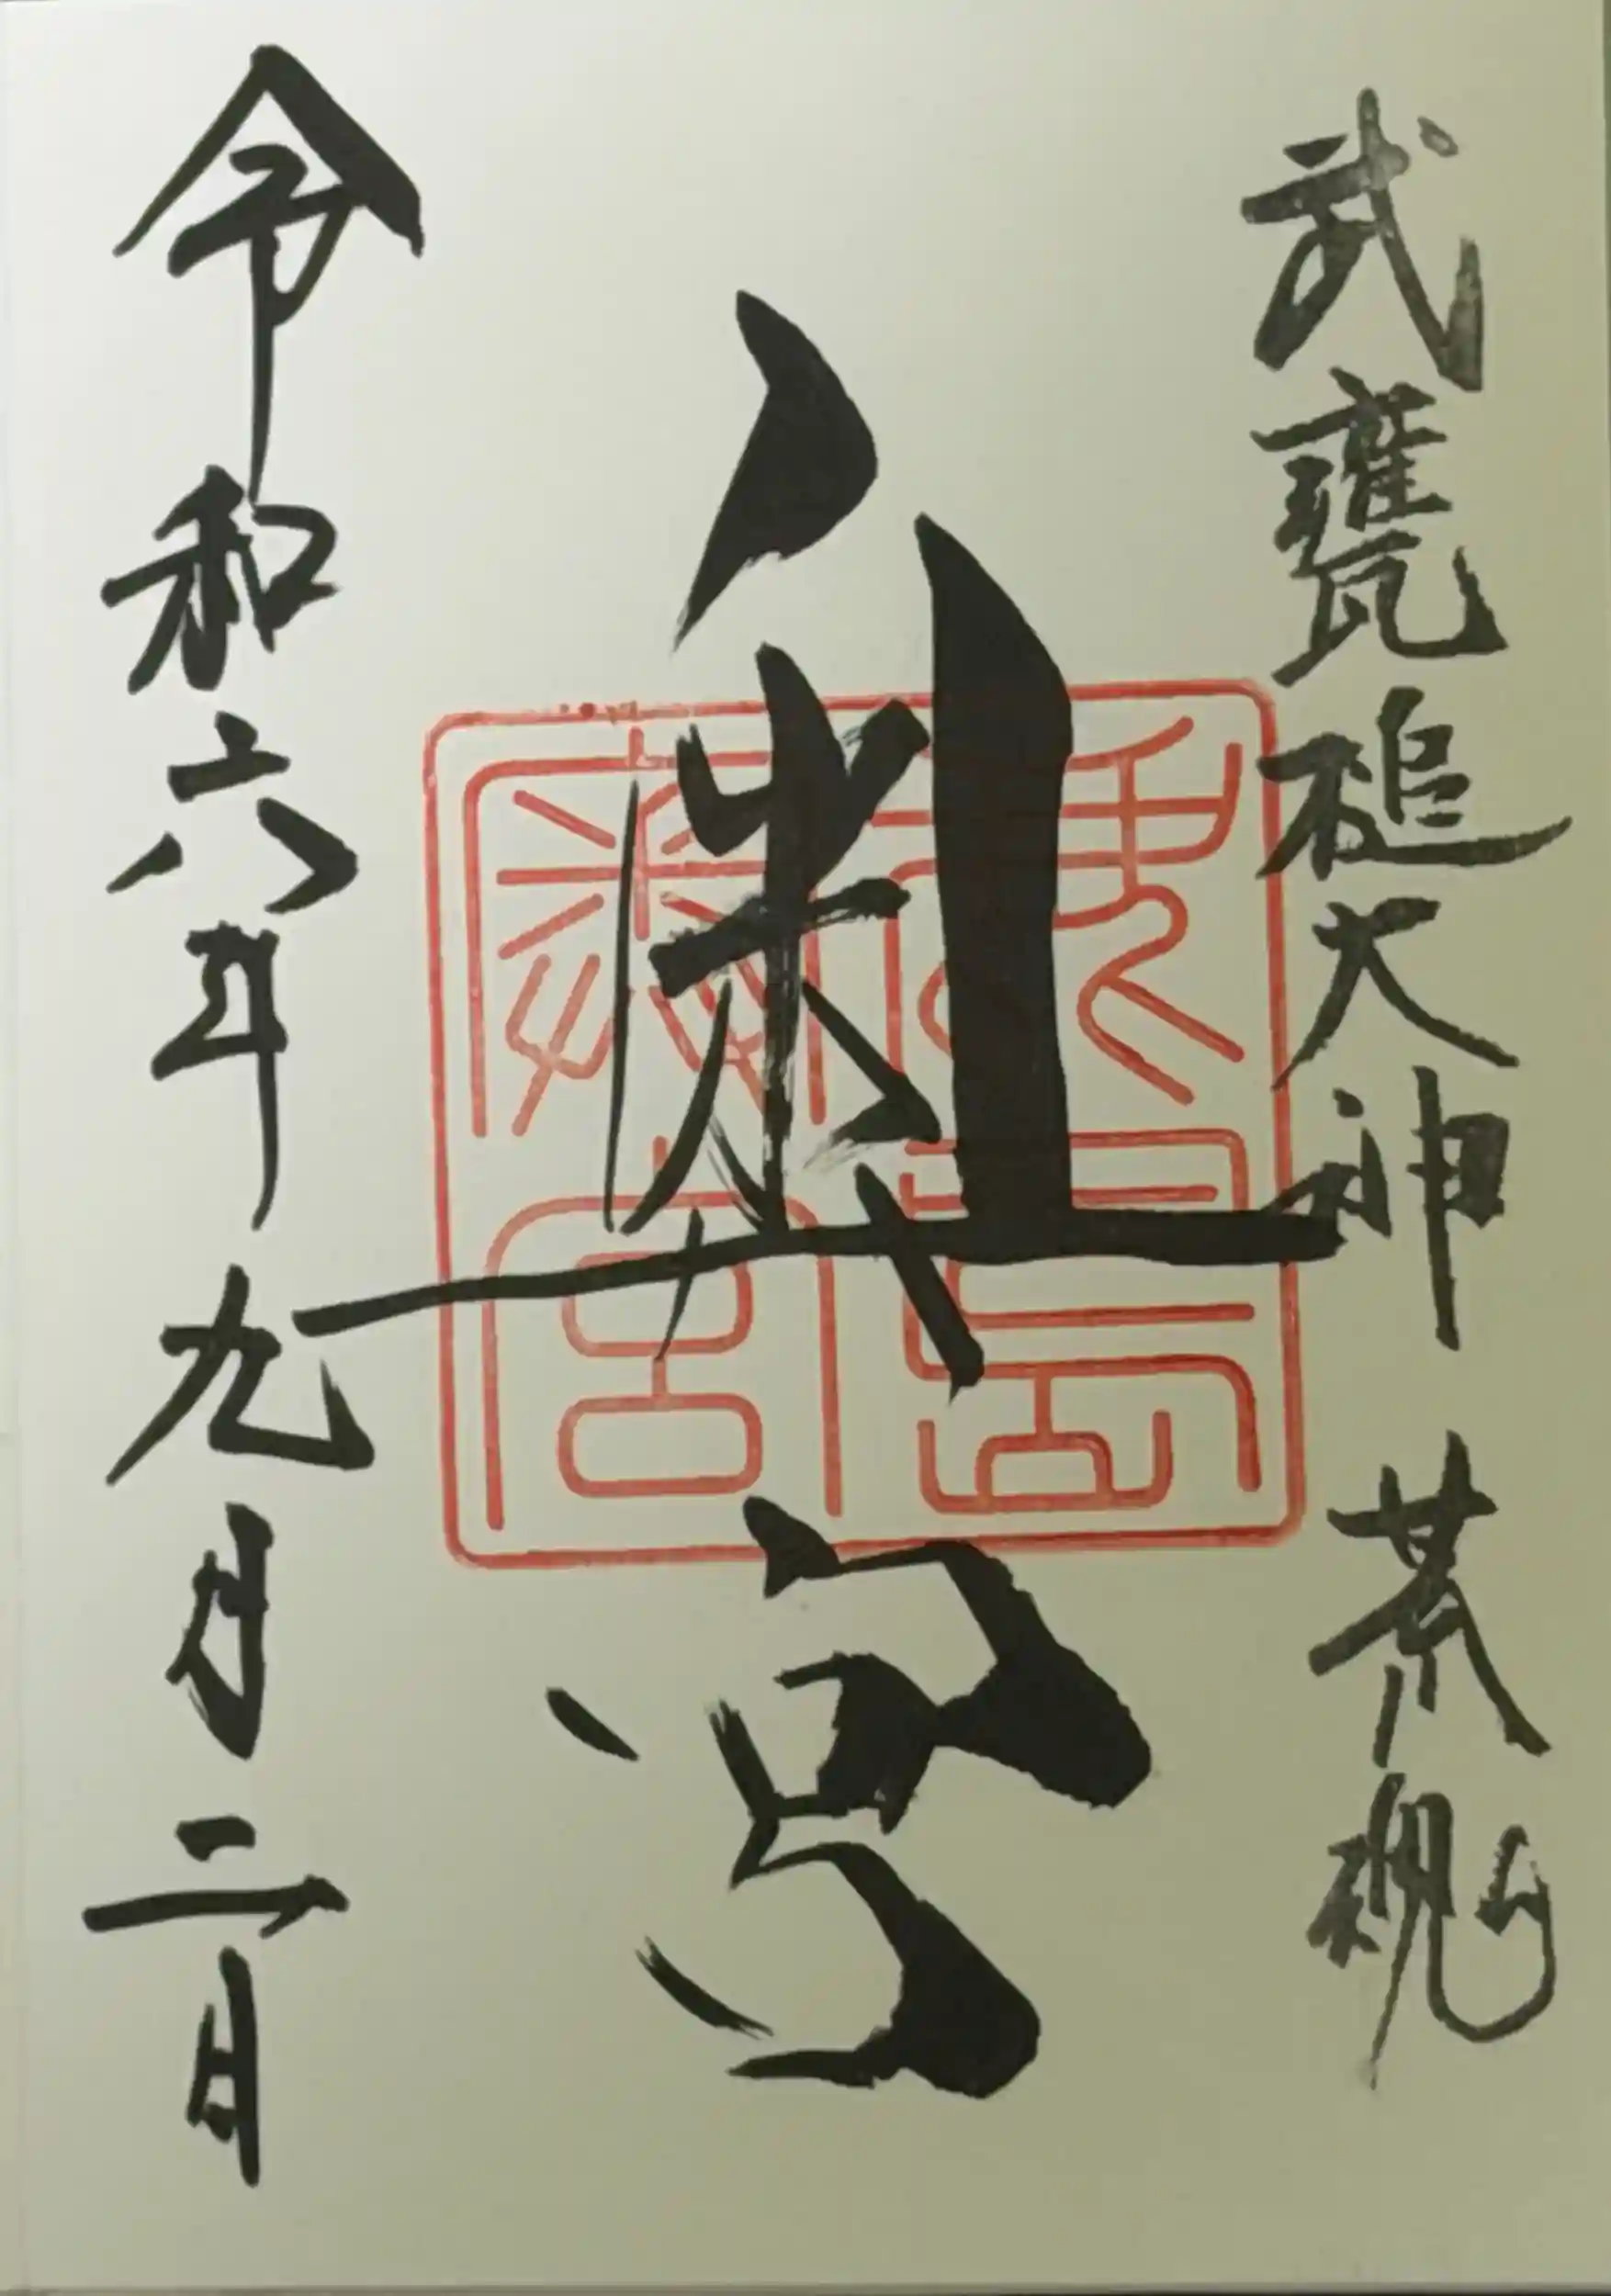 武甕槌大神 荒魂
奥宮
鹿島奥宮
令和六年九月二日